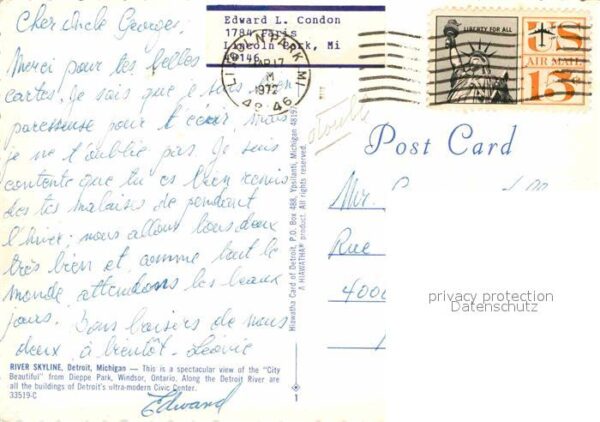 Cher uncle Georges,
Merci pour tes belles
cartes. Je sais que je suis bien
paresseuse pour t'écrire mais
je ne t'oublie pas. Je suis
contente que tu es bien remis
des tes malaises de pendant
l'hiver; nous allons tous deux
très bien et, comme tout le
monde, attendons les beaux
jours. Bons baisers de nous
deux, à bientôt. Léonie
Edward
Edward L. Condon
1784 Paris
Lincoln Park, Mi
48146
LINCOLN PARK, MI
APR 17
M
1972
LIBERTY FOR ALL
US
AIR MAIL
15c
Post Card
Mr.
Rue
4000
privacy protection
Datenschutz
Hiawatha Card of Detroit, P.O. Box 488, Ypsilanti, Michigan 48197
A HIAWATHA product. All rights reserved.
RIVER SKYLINE, Detroit, Michigan — This is a spectacular view of the "City
Beautiful" from Dieppe Park, Windsor, Ontario. Along the Detroit River are
all the buildings of Detroit's ultra-modern Civic Center.
33519-C
1